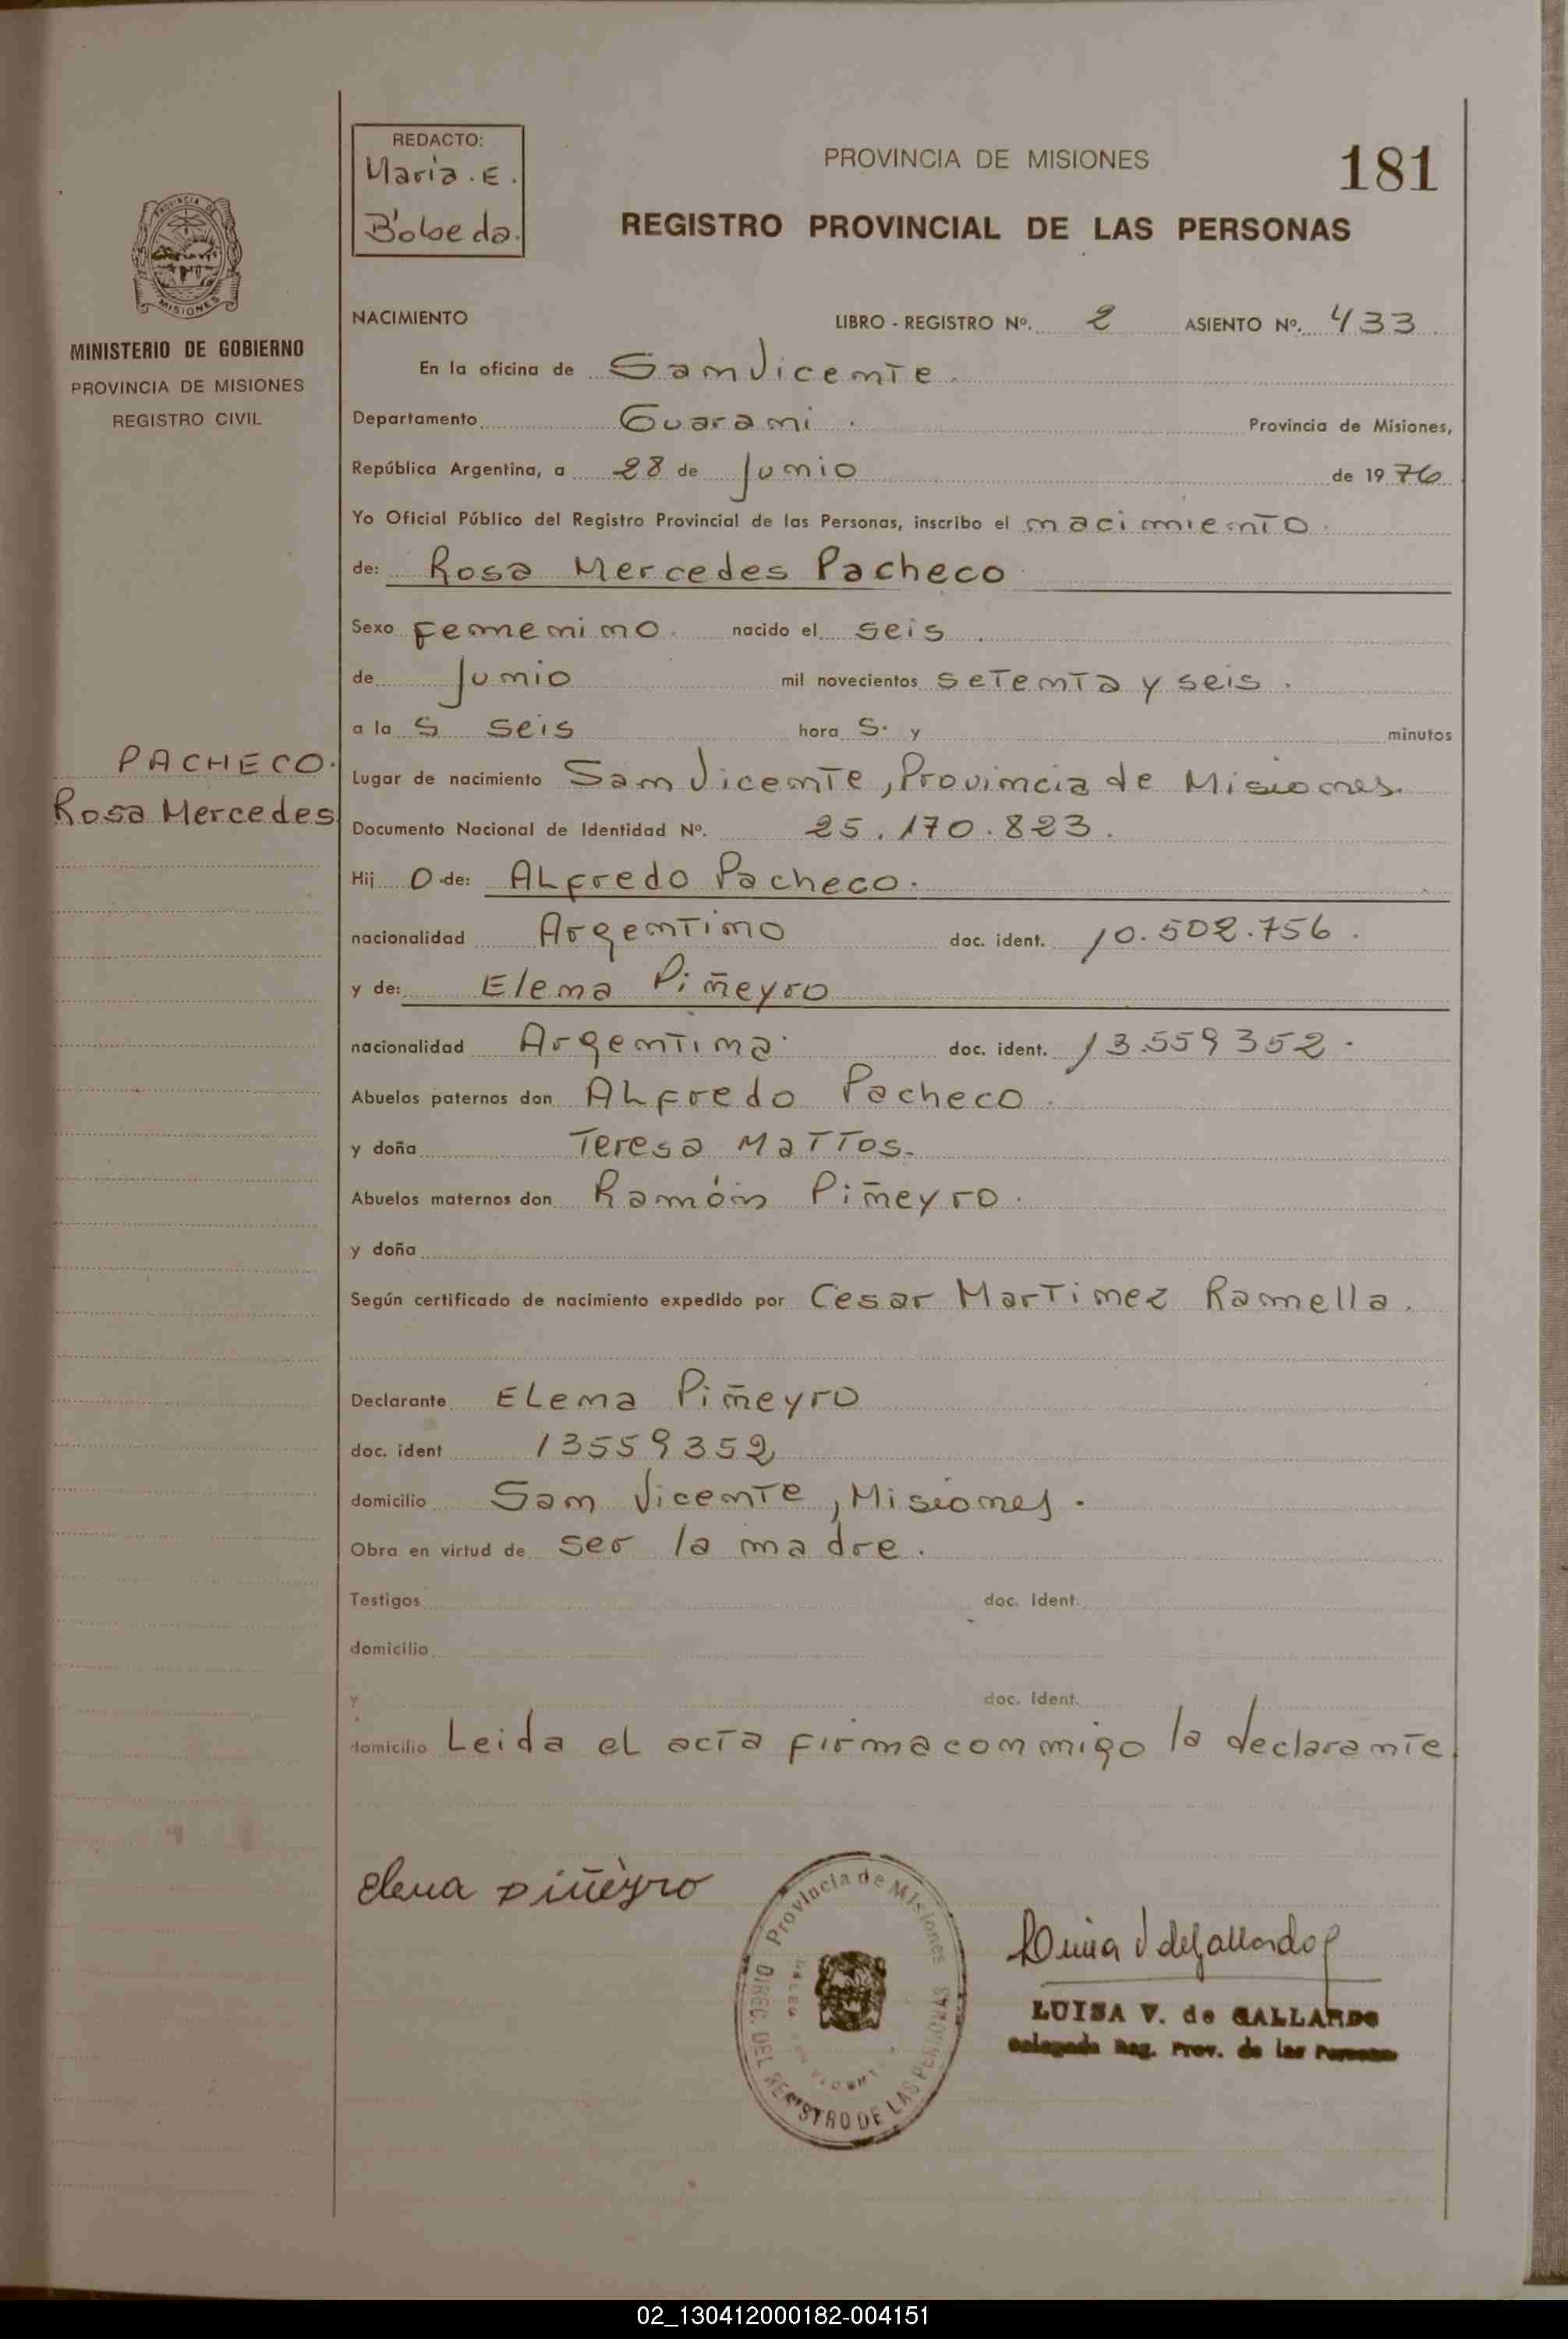 REDACTO:
Maria. E.
Bóbeda.
PROVINCIA DE MISIONES
181
REGISTRO PROVINCIAL DE LAS PERSONAS
PROVINCIA DE
MISIONES
MINISTERIO DE GOBIERNO
PROVINCIA DE MISIONES
REGISTRO CIVIL
NACIMIENTO LIBRO - REGISTRO Nº. 2 ASIENTO Nº. 433.
En la oficina de San Vicente.
Departamento Guarani. Provincia de Misiones,
República Argentina, a 28 de Junio de 1976
Yo Oficial Público del Registro Provincial de las Personas, inscribo el nacimiento.
de: Rosa Mercedes Pacheco
Sexo femenino. nacido el seis.
de Junio mil novecientos setenta y seis.
a la s seis hora s. y minutos
PACHECO.
Rosa Mercedes
Lugar de nacimiento San Vicente, Provincia de Misiones.
Documento Nacional de Identidad Nº. 25.170.823.
Hij o de: Alfredo Pacheco.
nacionalidad Argentino doc. ident. 10.502.756.
y de: Elena Piñeyro
nacionalidad Argentina. doc. ident. 13.559352.
Abuelos paternos don Alfredo Pacheco.
y doña Teresa Mattos.
Abuelos maternos don Ramón Piñeyro.
y doña
Según certificado de nacimiento expedido por Cesar Martinez Ramella.
Declarante Elena Piñeyro
doc. ident 13559352
domicilio San Vicente, Misiones.
Obra en virtud de ser la madre.
Testigos doc. Ident.
domicilio
y doc. Ident.
domicilio Leida el acta firma conmigo la declarante.
Elena Piñeyro
Provincia de Misiones
DIREC. DEL REGISTRO DE LAS PERSONAS
LUISA V. de GALLARDO
Delegada Reg. Prov. de las Personas
02_130412000182-004151